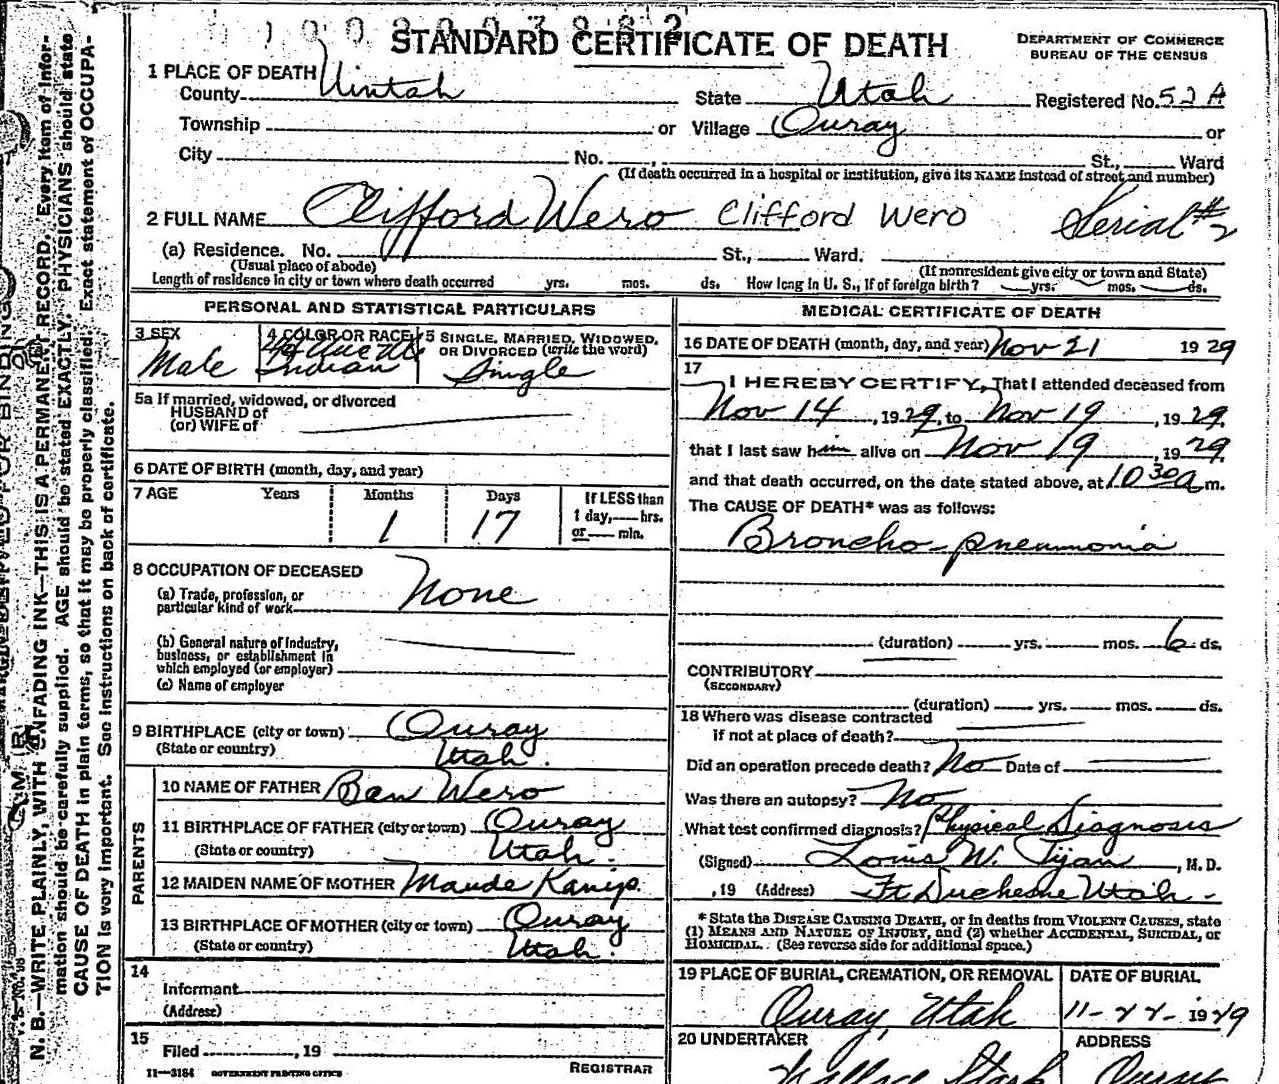 STANDARD CERTIFICATE OF DEATH
DEPARTMENT OF COMMERCE
BUREAU OF THE CENSUS
1 PLACE OF DEATH
County Uintah State Utah Registered No. 52 A
Township or Village Ouray or
City No. St., Ward
(If death occurred in a hospital or institution, give its NAME instead of street and number)
2 FULL NAME Clifford Wero Clifford Wero Serial # 2
(a) Residence. No. St., Ward.
(Usual place of abode) (If nonresident give city or town and State)
Length of residence in city or town where death occurred yrs. mos. ds. How long in U. S., if of foreign birth? yrs. mos. ds.
PERSONAL AND STATISTICAL PARTICULARS
3 SEX 4 COLOR OR RACE 5 SINGLE, MARRIED, WIDOWED, OR DIVORCED (write the word)
Male Indian Single
5a If married, widowed, or divorced
HUSBAND of
(or) WIFE of
6 DATE OF BIRTH (month, day, and year)
7 AGE Years Months Days If LESS than
1 day, hrs.
or min.
1 17
8 OCCUPATION OF DECEASED
(a) Trade, profession, or
particular kind of work None
(b) General nature of industry,
business, or establishment in
which employed (or employer)
(c) Name of employer
9 BIRTHPLACE (city or town) Ouray
(State or country) Utah.
PARENTS
10 NAME OF FATHER Ben Wero
11 BIRTHPLACE OF FATHER (city or town) Ouray
(State or country) Utah.
12 MAIDEN NAME OF MOTHER Maude
13 BIRTHPLACE OF MOTHER (city or town) Ouray
(State or country) Utah.
14
Informant
(Address)
15
Filed , 19
REGISTRAR
11—3184 GOVERNMENT PRINTING OFFICE
MEDICAL CERTIFICATE OF DEATH
16 DATE OF DEATH (month, day, and year) Nov 21 1929
17
I HEREBY CERTIFY, That I attended deceased from
Nov 14, 1929, to Nov 19, 1929.
that I last saw him alive on Nov 19, 1929.
and that death occurred, on the date stated above, at 10 30 a m.
The CAUSE OF DEATH* was as follows:
Broncho-pneumonia
(duration) yrs. mos. 6 ds.
CONTRIBUTORY
(SECONDARY)
(duration) yrs. mos. ds.
18 Where was disease contracted
if not at place of death?
Did an operation precede death? No Date of
Was there an autopsy? No
What test confirmed diagnosis? Physical Diagnosis
(Signed) Louis W. , M. D.
, 19 (Address) Ft Duchesne Utah.
* State the DISEASE CAUSING DEATH, or in deaths from VIOLENT CAUSES, state
(1) MEANS AND NATURE OF INJURY, and (2) whether ACCIDENTAL, SUICIDAL, or
HOMICIDAL. (See reverse side for additional space.)
19 PLACE OF BURIAL, CREMATION, OR REMOVAL DATE OF BURIAL
Ouray, Utah 11-22-1929
20 UNDERTAKER ADDRESS
Wallace Stark Ouray
N. B.—WRITE PLAINLY, WITH UNFADING INK—THIS IS A PERMANENT RECORD. Every item of infor-
mation should be carefully supplied. AGE should be stated EXACTLY. PHYSICIANS should state
CAUSE OF DEATH in plain terms, so that it may be properly classified. Exact statement of OCCUPA-
TION is very important. See instructions on back of certificate.